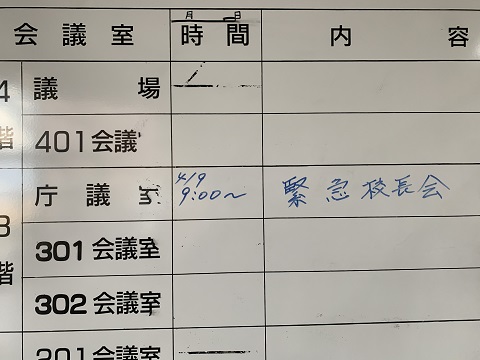 月 日
会議室 時間 内容
4階 議場
401会議
庁議室 4/9 9:00～ 緊急校長会
3階 301会議室
302会議室
201会議室